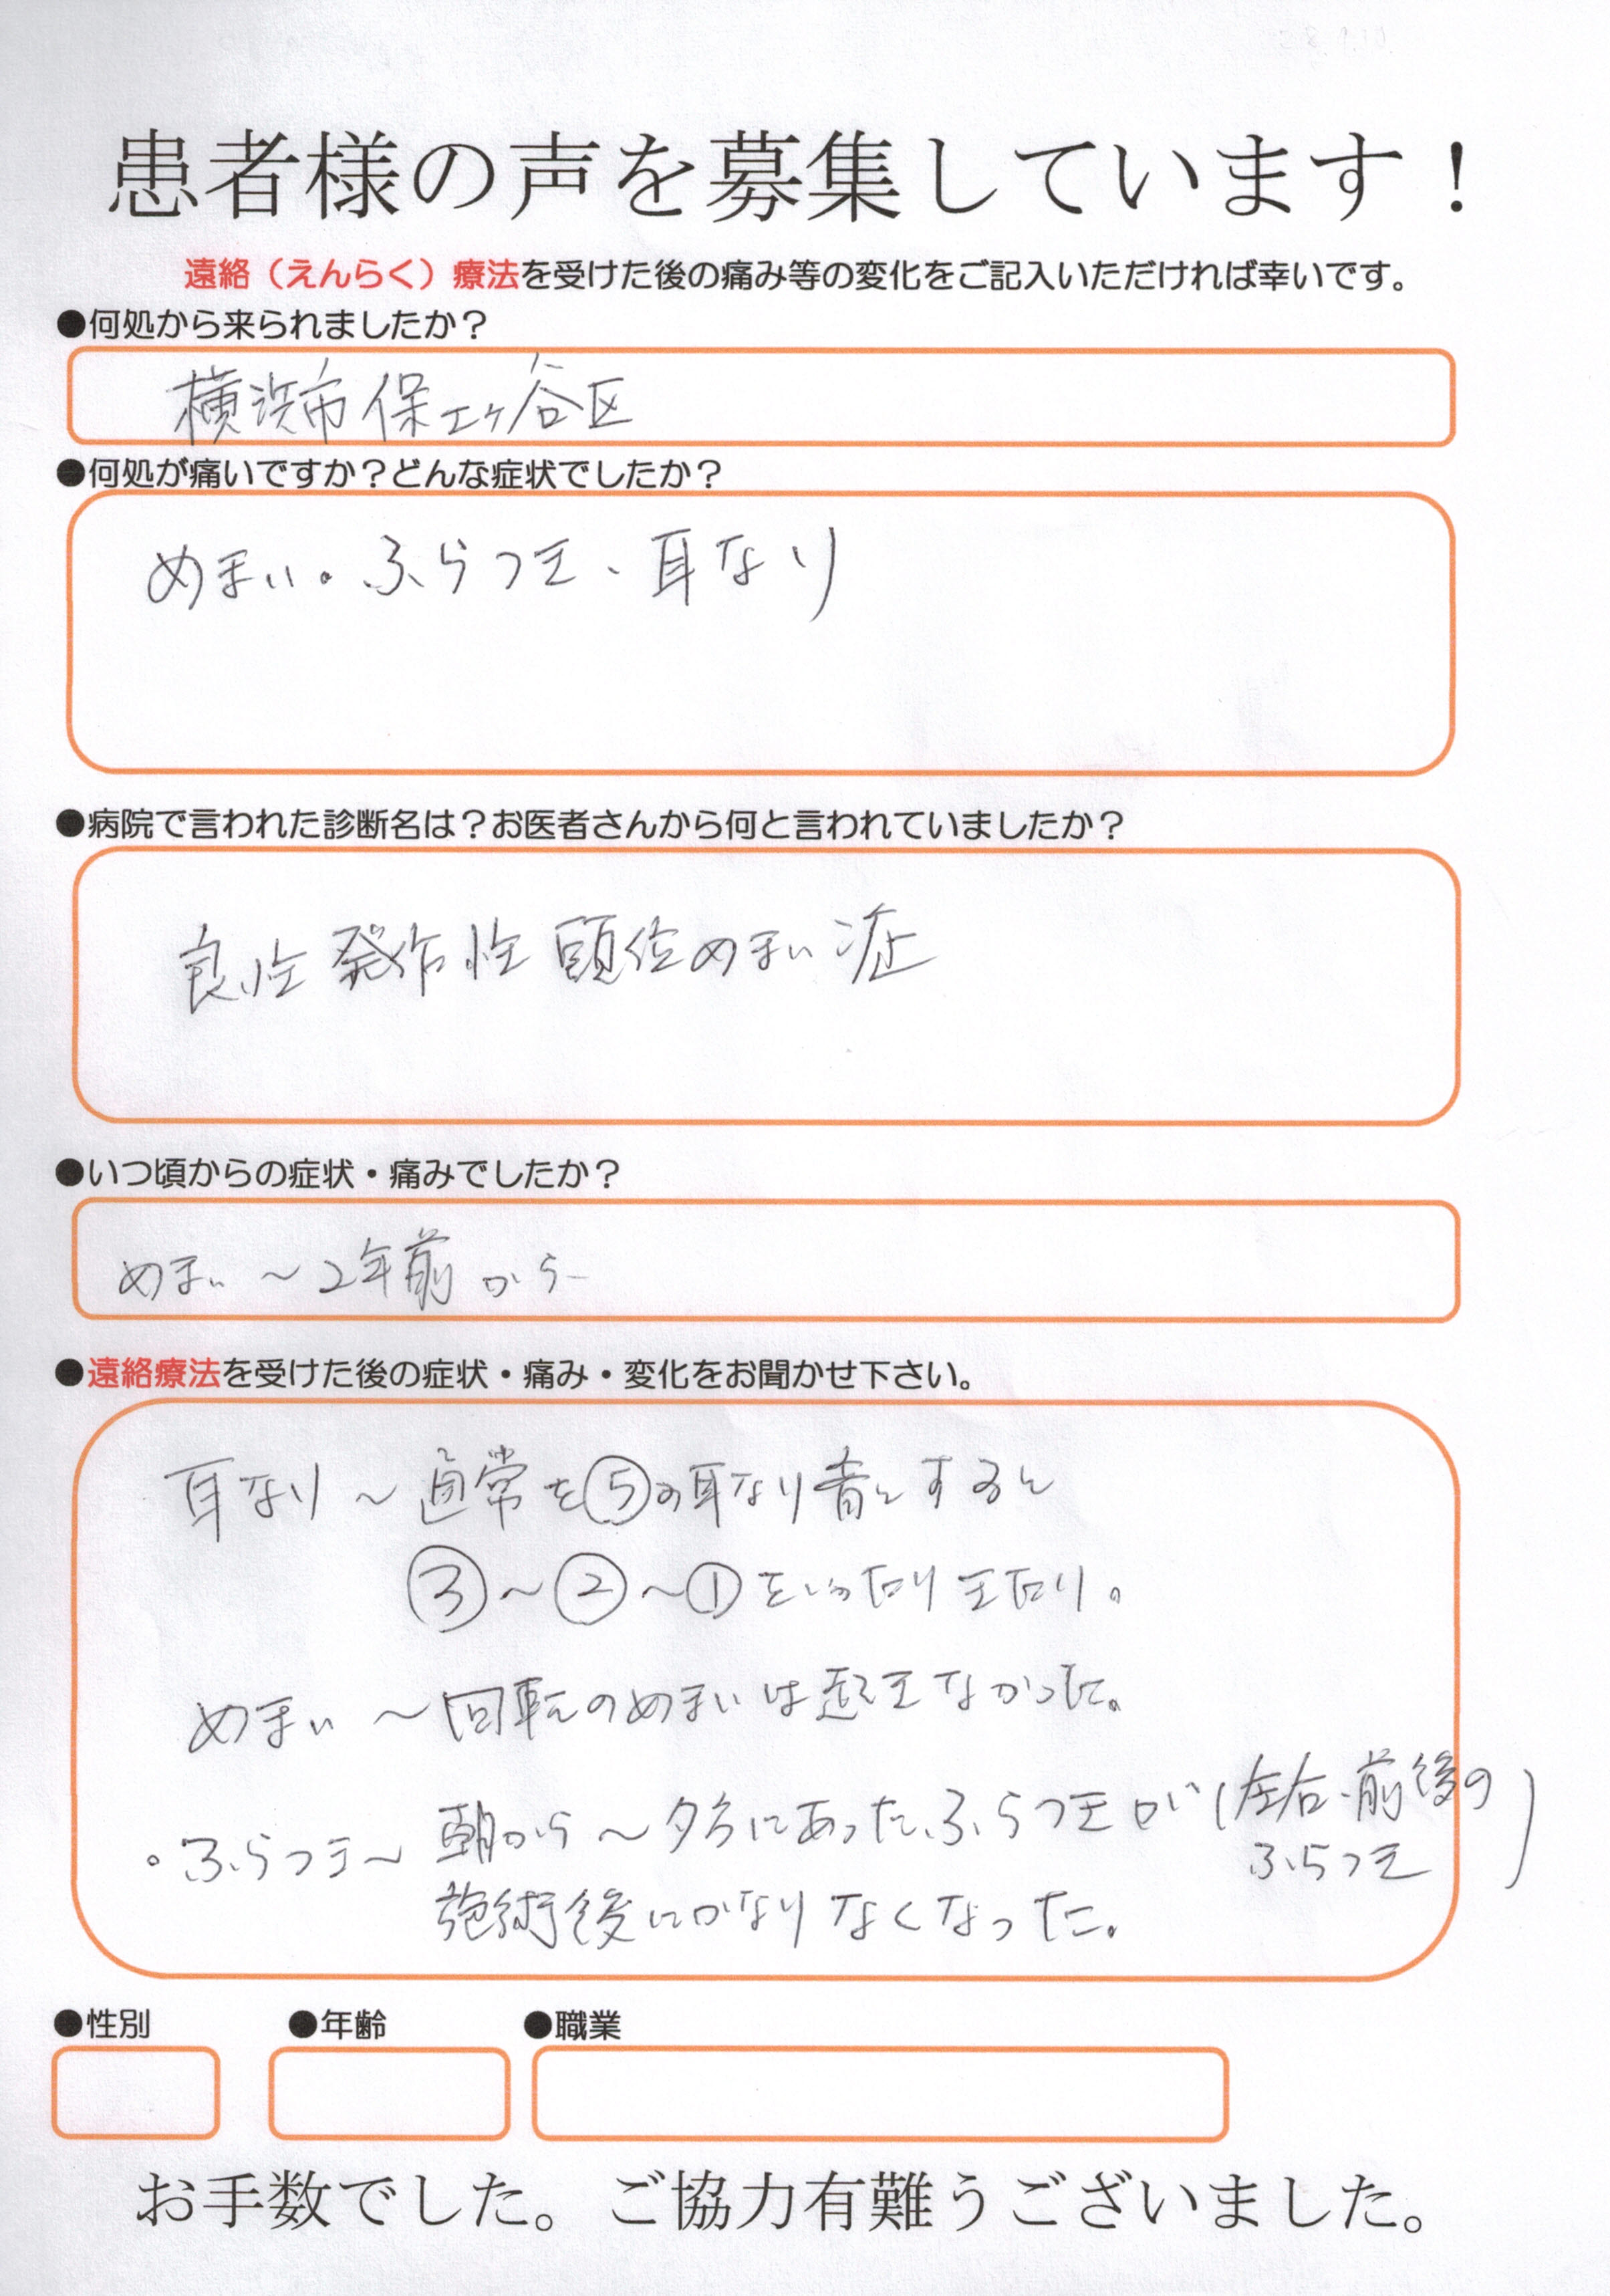 患者様の声を募集しています！
遠絡（えんらく）療法を受けた後の痛み等の変化をご記入いただければ幸いです。
●何処から来られましたか？
横浜市保土ヶ谷区
●何処が痛いですか？どんな症状でしたか？
めまい。ふらつき、耳なり
●病院で言われた診断名は？お医者さんから何と言われていましたか？
良性発作性頭位めまい症
●いつ頃からの症状・痛みでしたか？
めまい～2年前から
●遠絡療法を受けた後の症状・痛み・変化をお聞かせ下さい。
耳なり～通常を⑤の耳なり音とすると
③～②～①をいったりきたり。
めまい～回転のめまいは起きなかった。
・ふらつき～朝から～夕方にあったふらつきが（左右・前後の
ふらつき）
施術後にかなりなくなった。
●性別 ●年齢 ●職業
お手数でした。ご協力有難うございました。